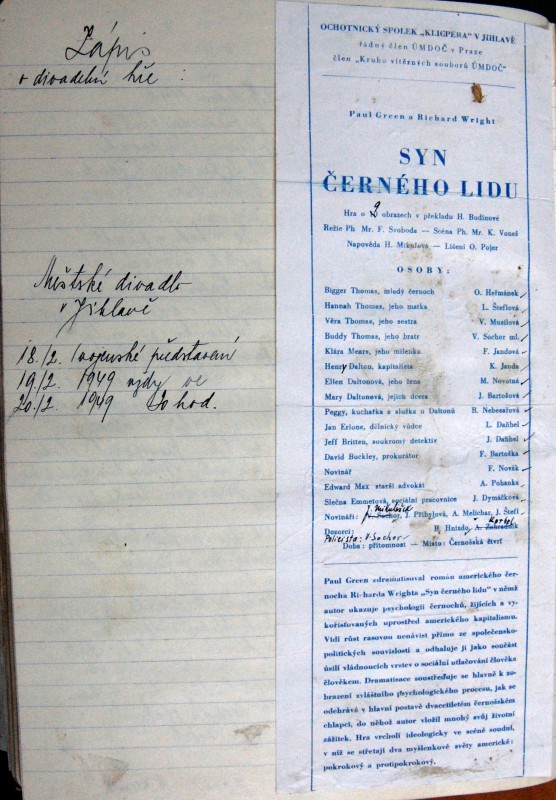 Zápis
o divadelní hře :
Městské divadlo
v Jihlavě
18./2. vojenské představení
19./2. 1949 vždy ve
20./2. 1949 20 hod.
OCHOTNICKÝ SPOLEK „KLICPERA“ V JIHLAVĚ
řádný člen ÚMDOČ v Praze
člen „Kruhu vítězných souborů ÚMDOČ“
Paul Green a Richard Wright
SYN
ČERNÉHO LIDU
Hra o 9 obrazech v překladu H. Budínové
Režie Ph Mr. F. Svoboda — Scéna Ph. Mr. K. Voneš
Napověda H. Mikulová — Líčení O. Pojer
OSOBY:
Bigger Thomas, mladý černoch O. Heřmánek
Hannah Thomas, jeho matka L. Šteflová
Věra Thomas, jeho sestra V. Musilová
Buddy Thomas, jeho bratr V. Sochor ml.
Klára Mears, jeho milenka F. Jandová
Henry Dalton, kapitalista K. Janda
Ellen Daltonová, jeho žena M. Novotná
Mary Daltonová, jejich dcera J. Bartošová
Peggy, kuchařka a služka u Daltonů B. Nebesařová
Jan Erlone, dělnický vůdce L. Daňhel
Jeff Britten, soukromý detektiv J. Daňhel
David Buckley, prokurátor F. Bartoška
Novinář F. Novák
Edward Max starší advokát A. Pohanka
Slečna Emmetová, sociální pracovnice J. Dymáčková
J. Mikulášek
Novináři: J. Sochor, J. Přibylová, A. Melichar, J. Štefl
Korbel
Dozorci: B. Hnízdo, A. Zahradník
Policista: V. Sochor
Doba: přítomnost — Místo: Černošská čtvrť
Paul Green zdramatisoval román amerického čer-
nocha Richarda Wrighta „Syn černého lidu“ v němž
autor ukazuje psychologii černochů, žijících a vy-
kořisťovaných uprostřed amerického kapitalismu.
Vidí růst rasovou nenávist přímo ze společensko-
politických souvislostí a odhaluje ji jako součást
úsilí vládnoucích vrstev o sociální utlačování člověka
člověkem. Dramatisace soustřeďuje se hlavně k zo-
brazení zvláštního psychologického procesu, jak se
odehrává v hlavní postavě dvacetiletém černošském
chlapci, do něhož autor vložil mnohý svůj životní
zážitek. Hra vrcholí ideologicky ve scéně soudní,
v níž se střetají dva myšlenkové světy americké:
pokrokový a protipokrokový.